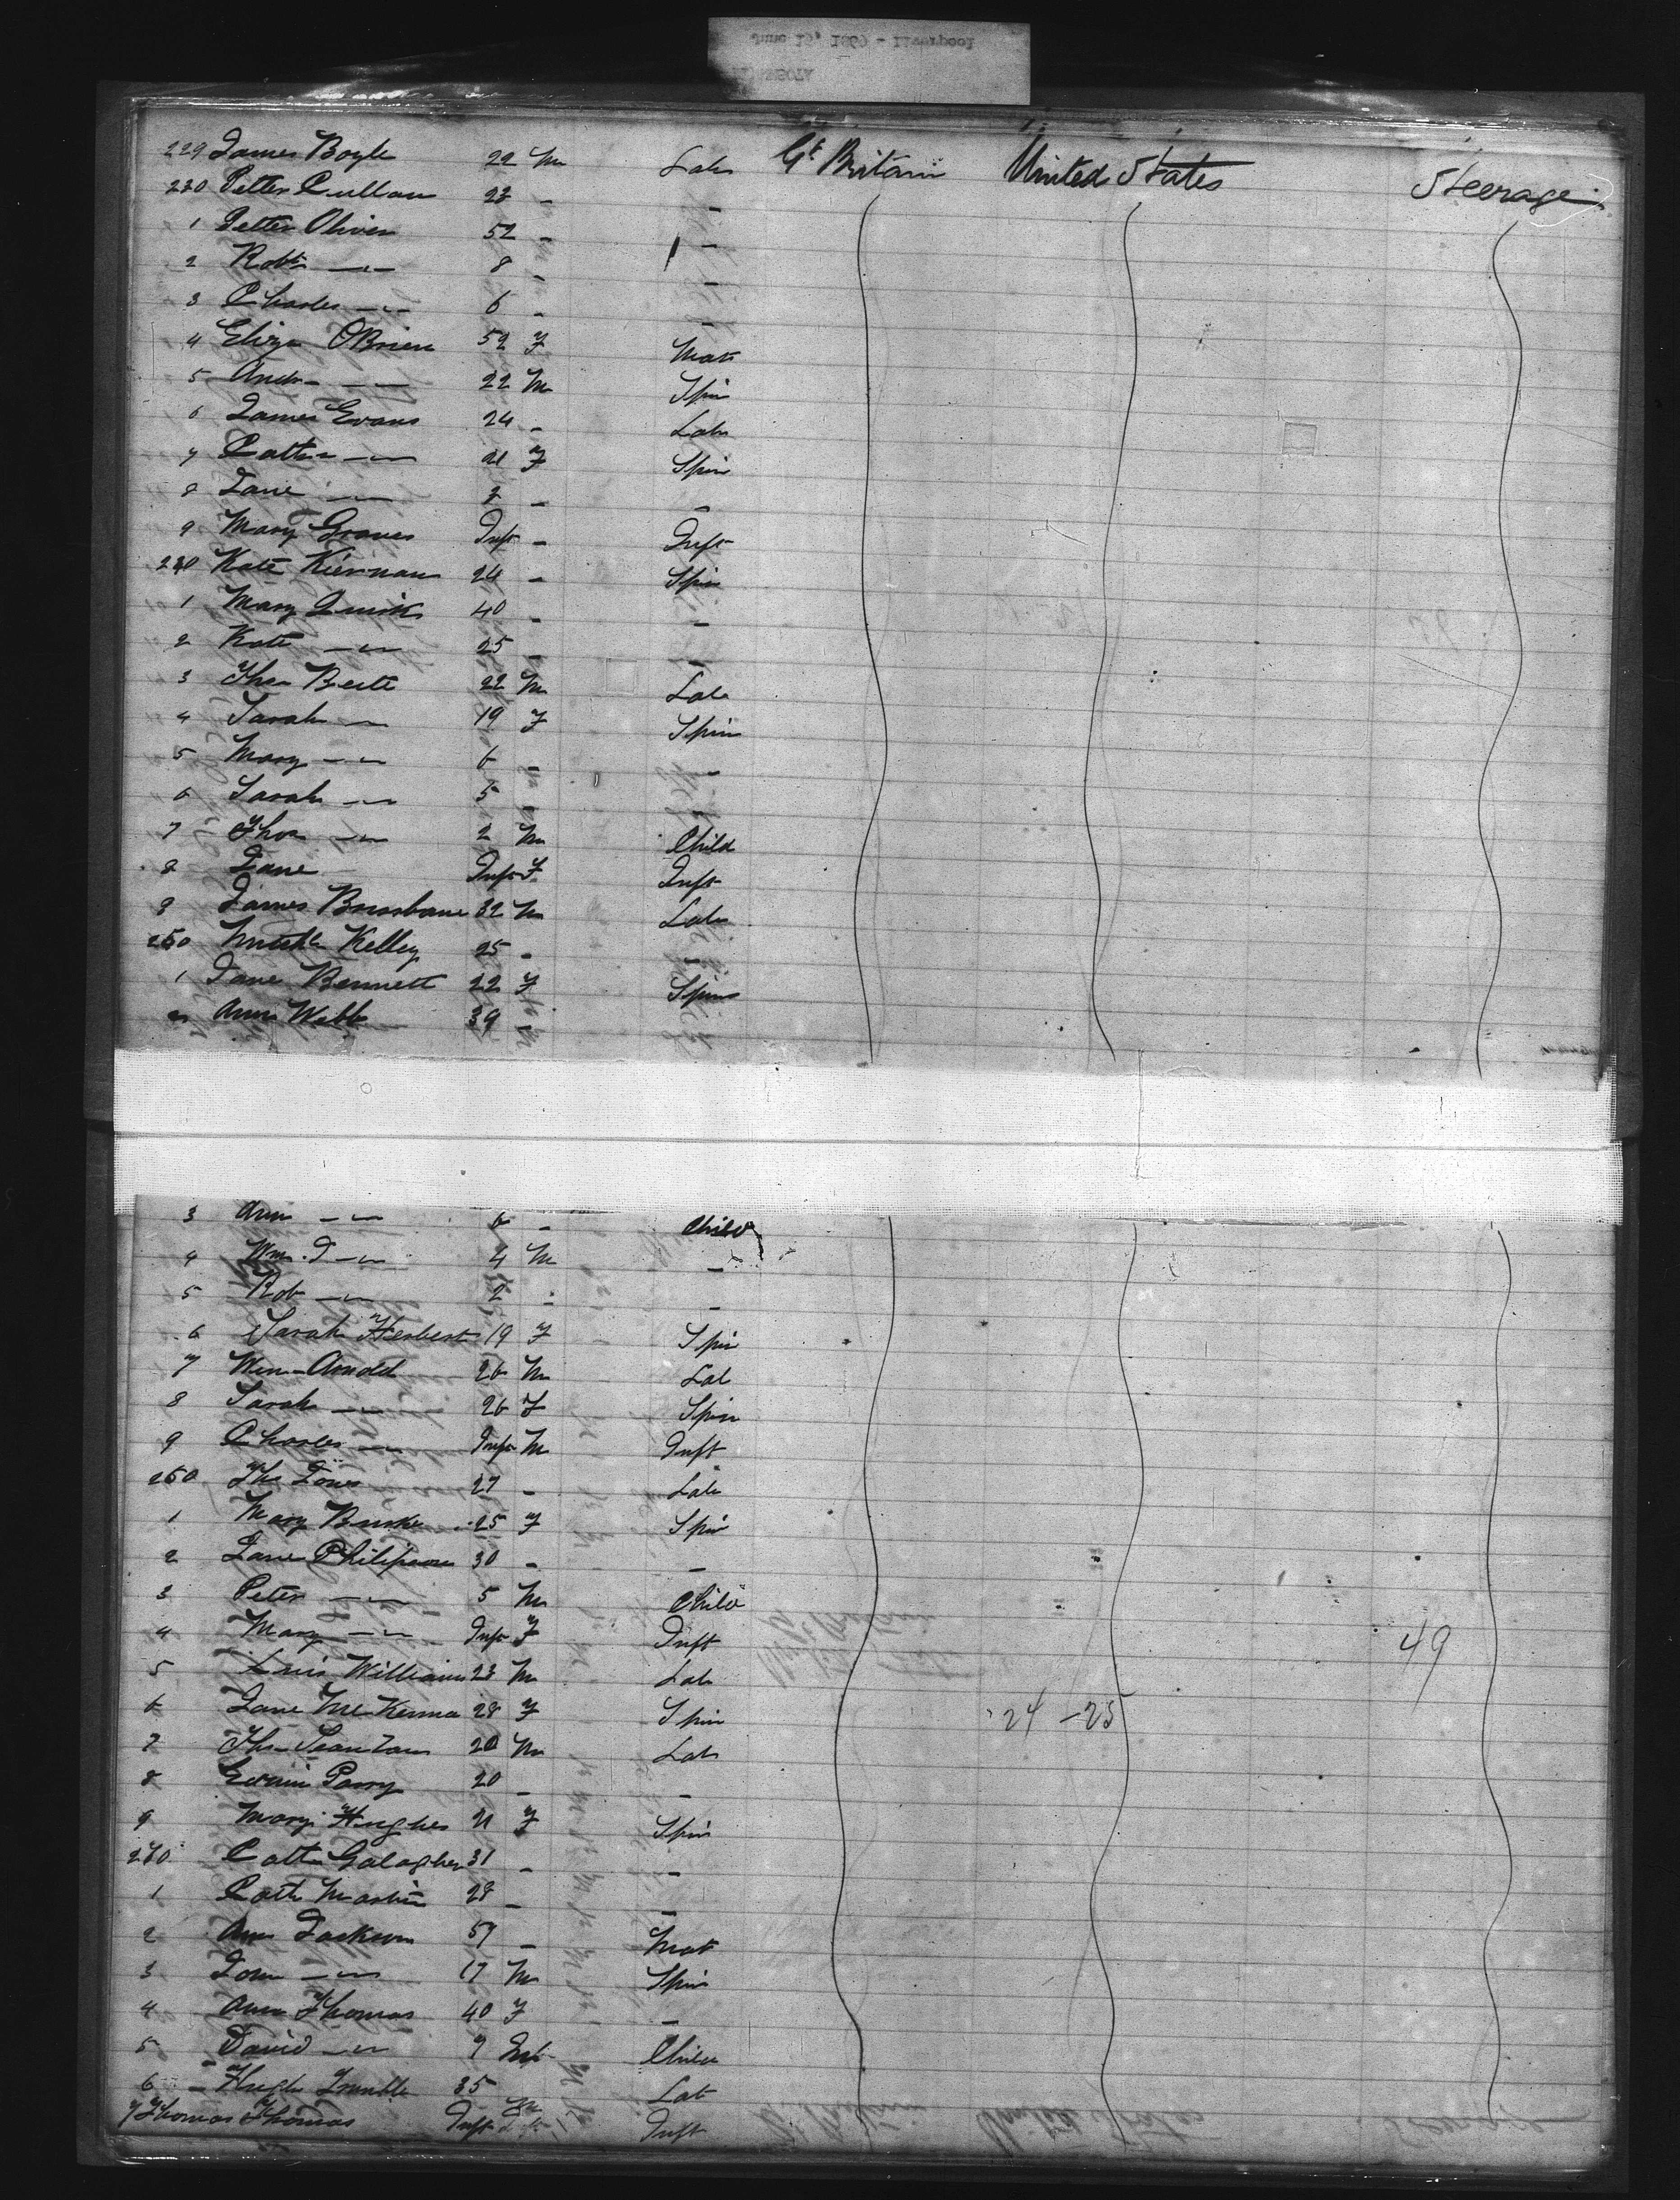 June 15, 1869 - Liverpool
229 James Boyle 22 M Lab Gt Britain United States Steerage
230 Petter Cullan 23 - -
1 Petter Oliver 52 - -
2 Robt -"- 8 - -
3 Charles -"- 6 - -
4 Eliza OBrien 52 F Mat
5 Andr -"- 22 M Spin
6 James Evans 24 - Lab
7 Cathr -"- 21 F Spin
8 Jane -"- 2 - -
9 Mary Graves Inft - Inft
240 Kate Kiernan 24 - Spin
1 Mary Quirk 40 - -
2 Kate -"- 25 - -
3 Thos 22 M Lab
4 Sarah -"- 19 F Spin
5 Mary -"- 6 - -
6 Sarah -"- 5 - -
7 Thos -"- 2 M Child
8 Jane Inft F Inft
9 James Brusbane 32 M Lab
250 Kelley 25 - -
1 Jane Bennett 22 F Spin
2 Ann Webb 39 -
3 Ann -"- 6 - Child
4 Wm. J -"- 4 M -
5 Rob -"- 2 - -
6 Sarah Herbert 19 F Spin
7 Wm Arnold 26 M Lab
8 Sarah -"- 26 F Spin
9 Charles -"- Inft M Inft
260 Tho Jones 27 - Lab
1 Mary Burke 25 F Spin
2 Jane Philipson 30 - -
3 Peter -"- 5 M Child
4 Mary -"- Inft F Inft 49
5 Luis Williams 23 M Lab
6 Jane McKenna 28 F Spin 24 - 25
7 Tho 20 M Lab
8 Edwin Parry 20 - -
9 Mary Hughes 21 F Spin
270 Cath Galagher 31 - -
1 Cath Martin 28 - -
2 Ann Jackson 57 - Mat
3 John -"- 17 M Spin
4 Ann Thomas 40 F -
5 David -"- 7 M Child
6 Hugh Trimble 35 Lab
7 Thomas Thomas Inft M Inft